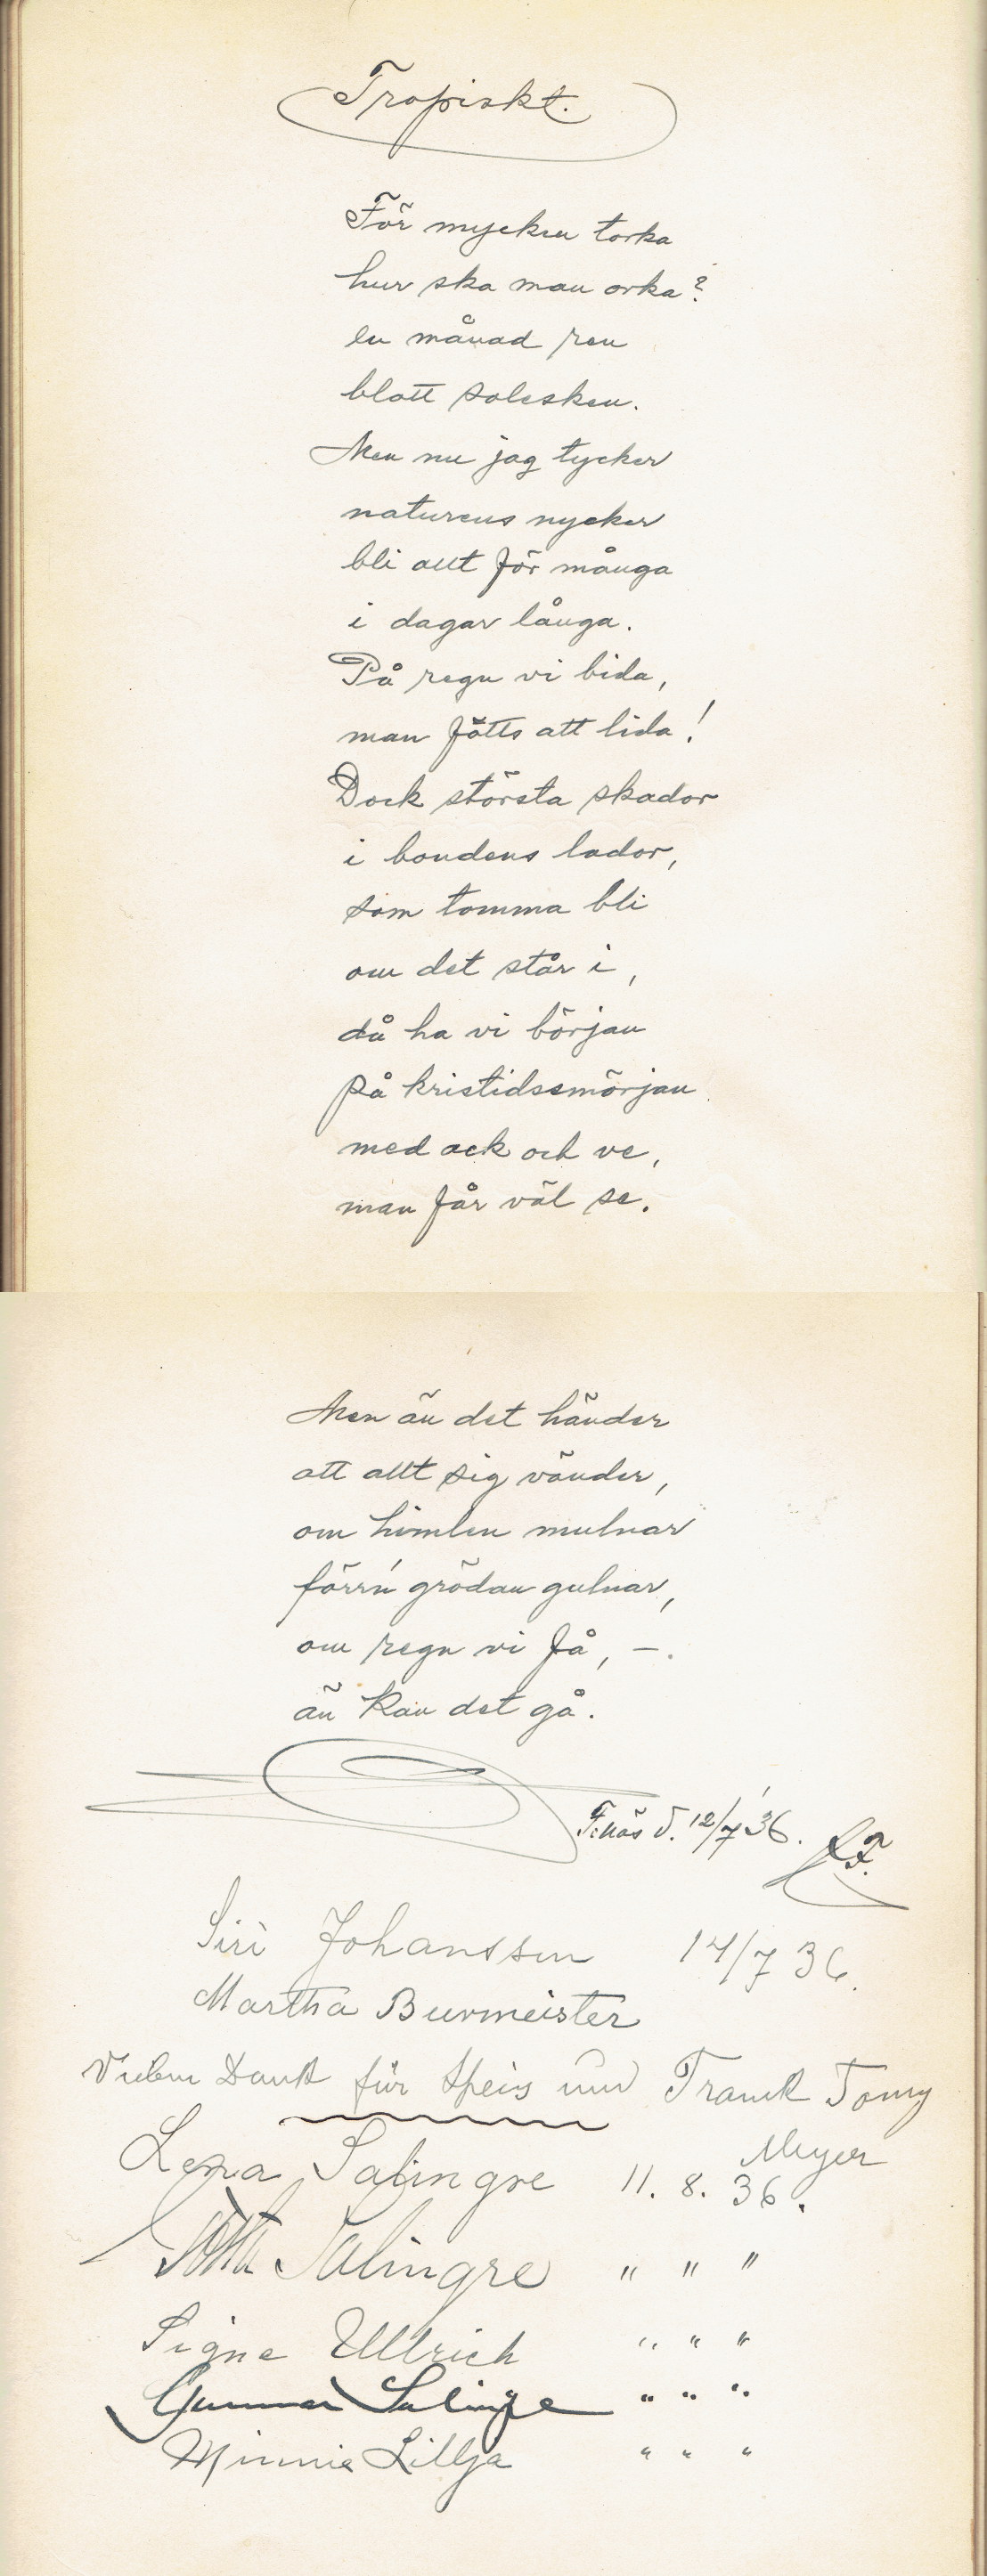 Tropiskt.
För mycken torka
hur ska man orka?
en månad ren
blott solsken.
Men nu jag tycker
naturens nycker
bli allt för många
i dagar långa.
På regn vi bida,
man fötts att lida!
Dock största skador
i bondens lador,
som tomma bli
om det står i,
då ha vi början
på kristidssmörjan
med ack och ve,
man får väl se.
Men än det händer
att allt sig vänder,
om himlen mulnar
förrn' grödan gulnar,
om regn vi få, –.
än kan det gå.
d. 12/7 '36.
Siri Johansson 14/7 36.
Martha Burmeister
Vielen Dank für Speis und Trank Tomy
Meyer
Lena Salingre 11. 8. 36.
Salingre " " "
Signe Ullrich " " "
Gunnar Salingre " " "
Minnie Lillja " " "